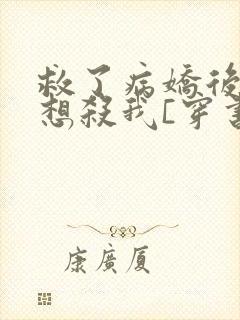 救了病嬌後
想殺我[穿書
康廣厦